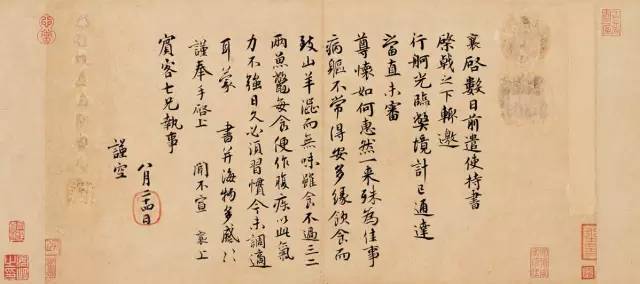 襄啓數日前遣使持書
棨戟之下輒邀
行舸光臨獘境計已通達
當直未審
尊懷如何惠然一来殊為佳事
病軀不常得安多緣飲食而
致山羊澁而無味雖食不過三二
兩魚鼈每食便作腹疾以此氣
力不強日久必須習慣今未調適
耳蒙 書并海物多感〻
謹奉手啓上 聞不宣 襄上
賓客七兄執事
八月二十四日
謹空